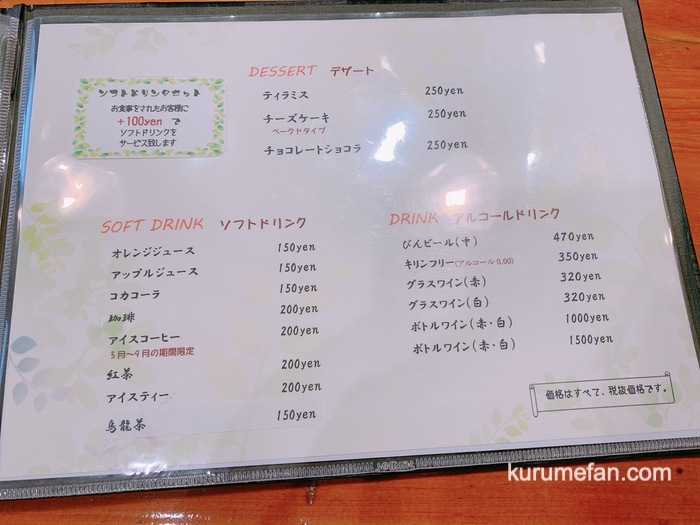 DESSERT デザート
ティラミス 250yen
チーズケーキ 250yen
ベークドタイプ
チョコレートショコラ 250yen
ソフトドリンクセット
お食事をされたお客様に
+100yen で
ソフトドリンクを
サービス致します
SOFT DRINK ソフトドリンク
オレンジジュース 150yen
アップルジュース 150yen
コカコーラ 150yen
珈琲 200yen
アイスコーヒー 200yen
5月～9月の期間限定
紅茶 200yen
アイスティー 200yen
烏龍茶 150yen
DRINK アルコールドリンク
びんビール(中) 470yen
キリンフリー(アルコール0.00) 350yen
グラスワイン(赤) 320yen
グラスワイン(白) 320yen
ボトルワイン(赤・白) 1000yen
ボトルワイン(赤・白) 1500yen
価格はすべて、税抜価格です。
kurumefan.com